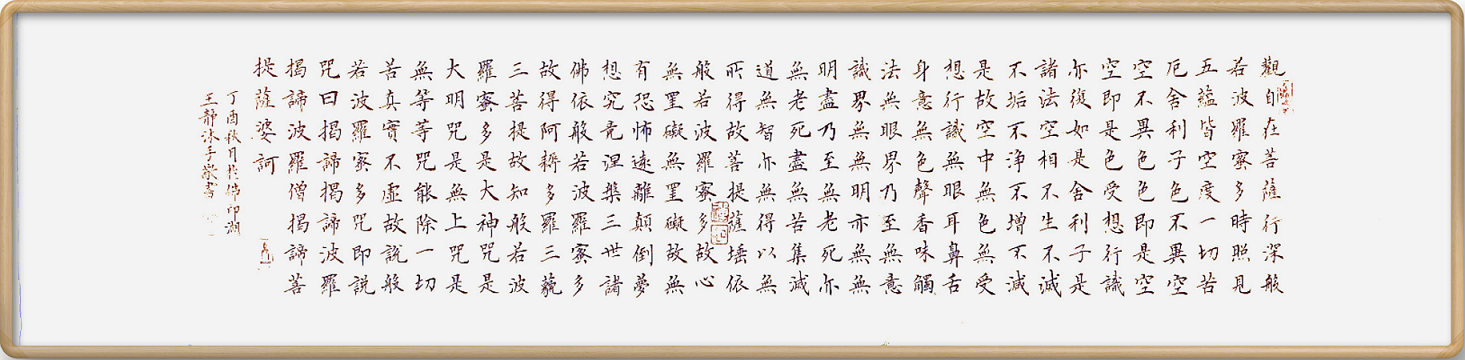 觀自在菩薩行深般
若波羅蜜多時照見
五蘊皆空度一切苦
厄舍利子色不異空
空不異色色即是空
空即是色受想行識
亦復如是舍利子是
諸法空相不生不滅
不垢不淨不增不減
是故空中無色無受
想行識無眼耳鼻舌
身意無色聲香味觸
法無眼界乃至無意
識界無無明亦無無
明盡乃至無老死亦
無老死盡無苦集滅
道無智亦無得以無
所得故菩提薩埵依
般若波羅蜜多故心
無罣礙無罣礙故無
有恐怖遠離顛倒夢
想究竟涅槃三世諸
佛依般若波羅蜜多
故得阿耨多羅三藐
三菩提故知般若波
羅蜜多是大神咒是
大明咒是無上咒是
無等等咒能除一切
苦真實不虛故說般
若波羅蜜多咒即說
咒曰揭諦揭諦波羅
揭諦波羅僧揭諦菩
提薩婆訶
丁酉秋月於佛印湖
王靜沐手敬書